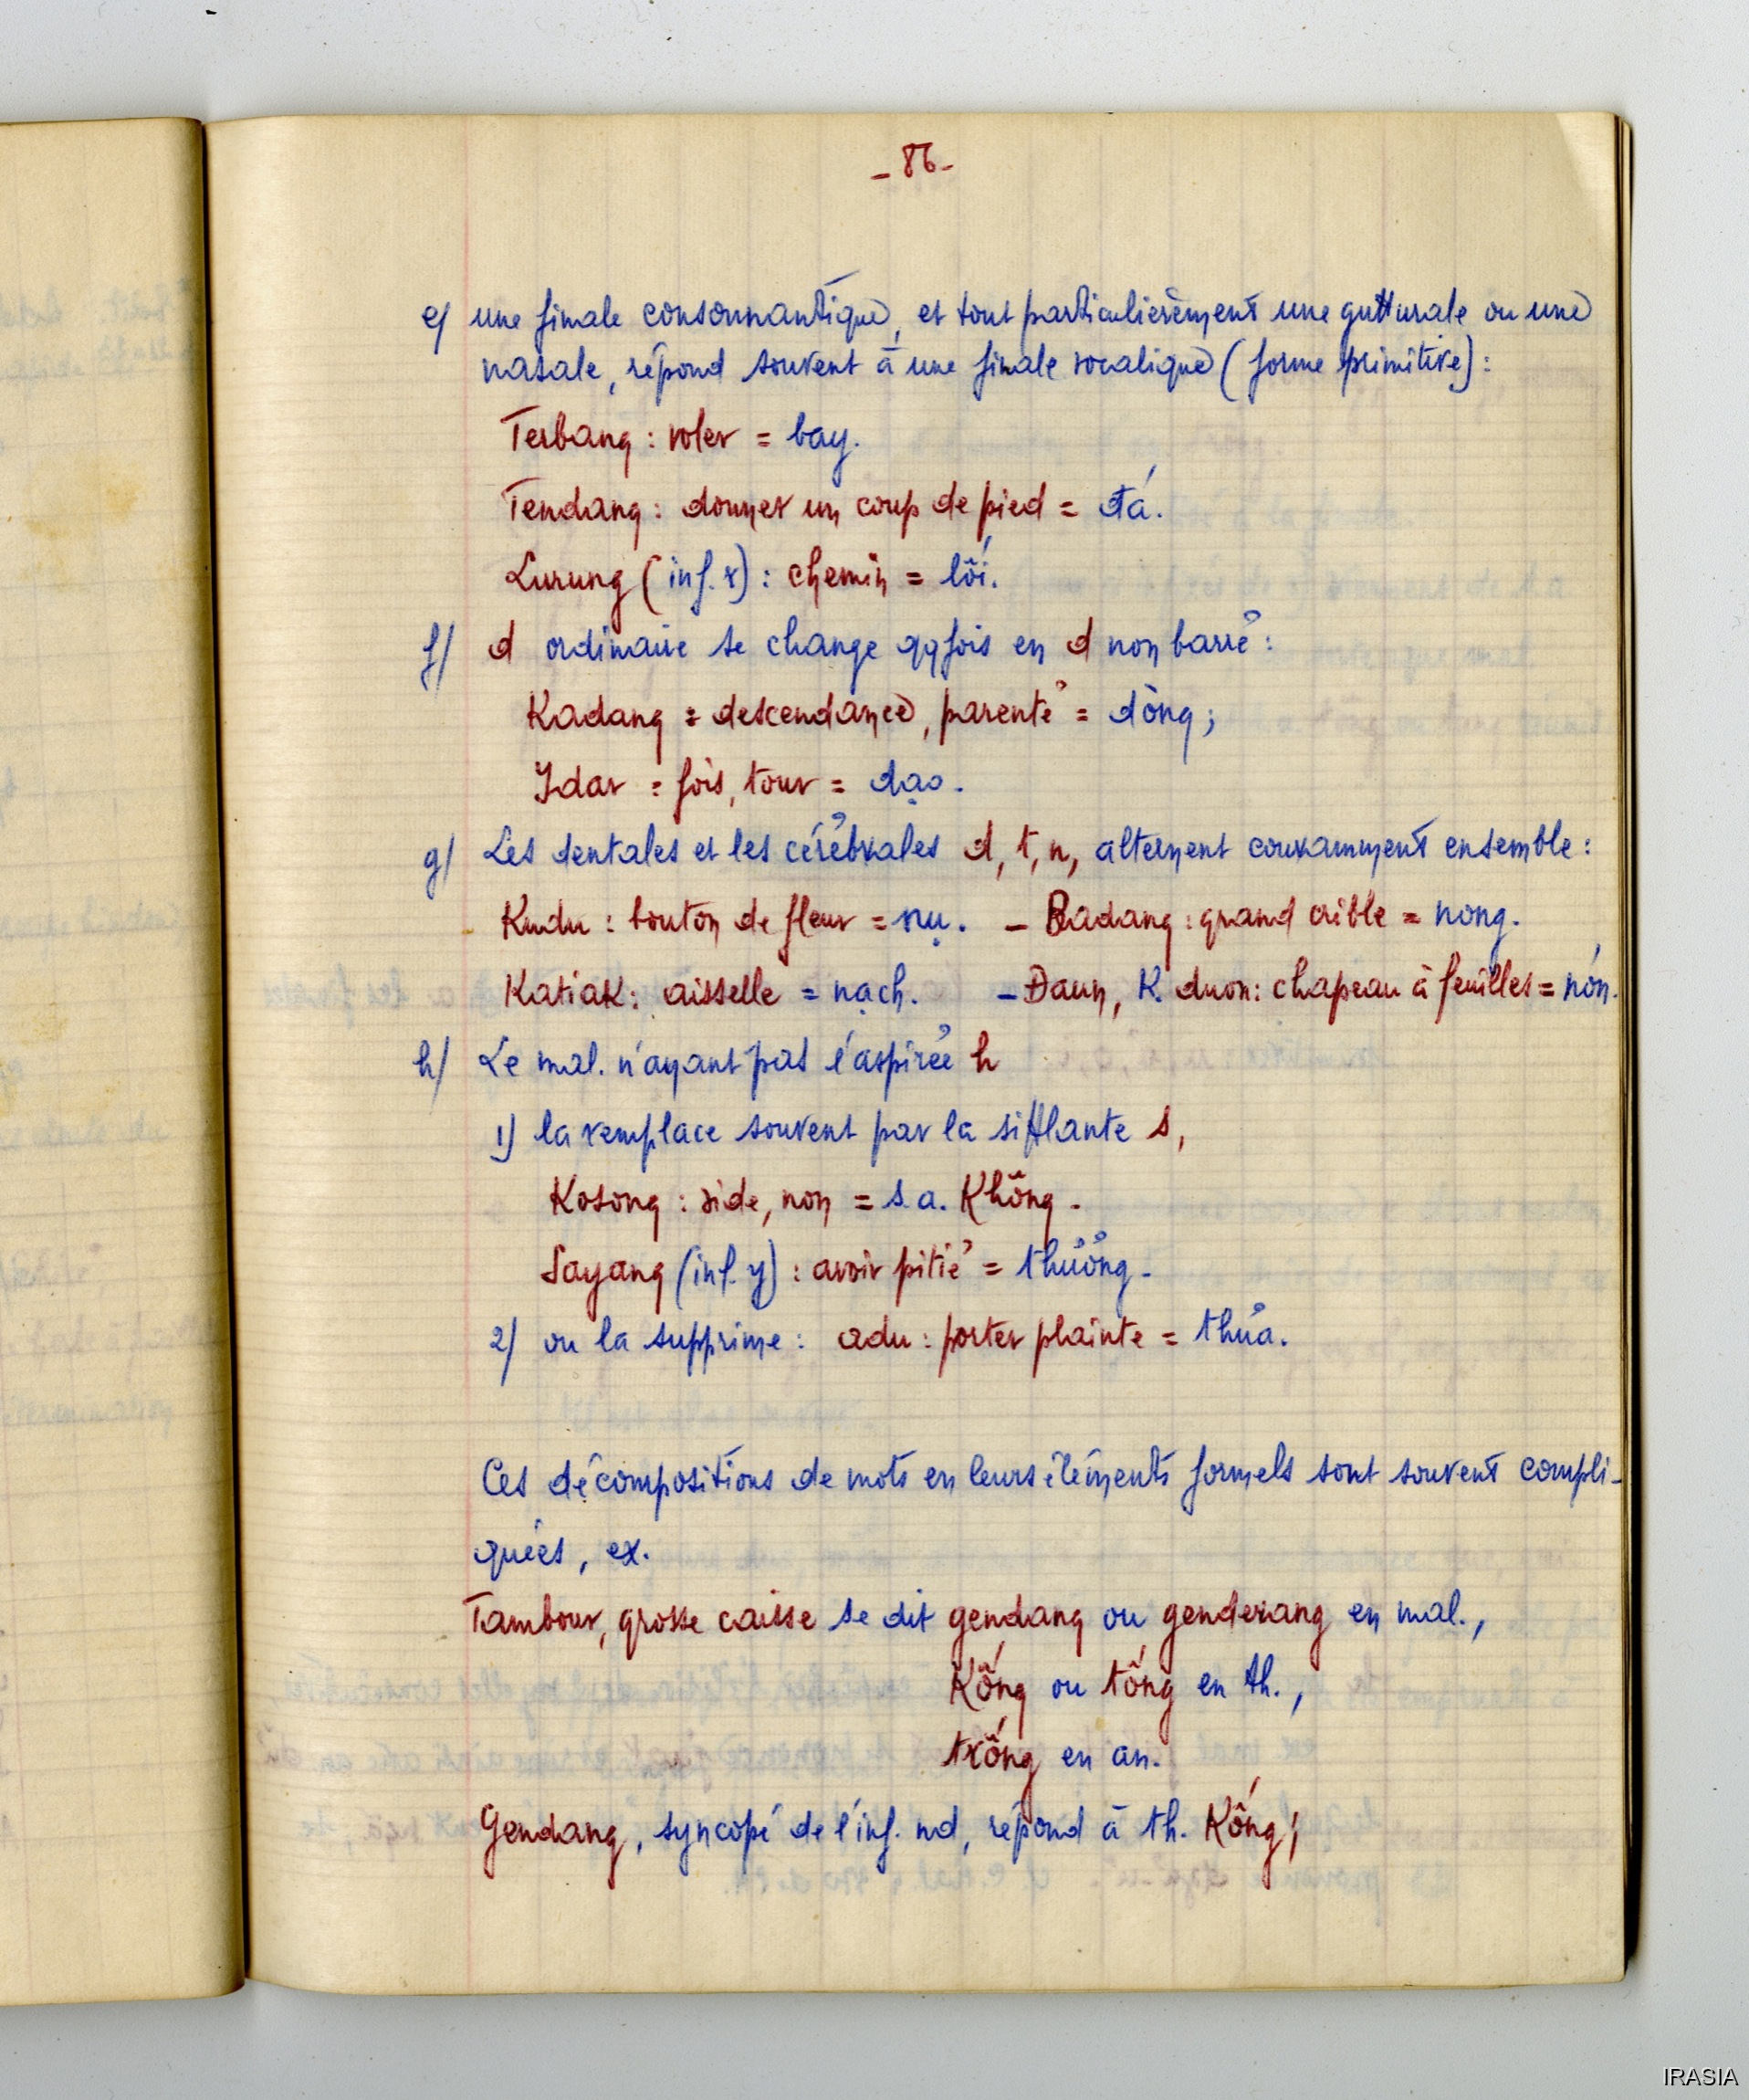 - 86 -
e/ une finale consonnantique, et tout particulièrement une gutturale ou une
nasale, répond souvent à une finale vocalique (forme primitive) :
Terbang : voler = bay.
Tendang : donner un coup de pied = đá.
Lurung (inf. r) : chemin = lối.
f/ d ordinaire se change qqfois en d non barré :
Kadang : descendance, parenté = dòng ;
Idar : fois, tour = dạo.
g/ Les dentales et les cérébrales d, t, n, alternent couramment ensemble :
Kudu : bouton de fleur = nụ. - Badang : grand crible = nong.
Katiak : aisselle = nạch. - Đaun, K. duon : chapeau à feuilles = nón.
h/ Le mal. n'ayant pas l'aspirée h
1) la remplace souvent par la sifflante s,
Kosong : vide, non = s.a. Không -
Sayang (inf. y) : avoir pitié = thương -
2/ ou la supprime : adu : porter plainte = thưa.
Ces décompositions de mots en leurs éléments formels sont souvent compli-
quées, ex.
Tambour, grosse caisse se dit gendang ou genderang en mal.,
Kống ou tống en th.,
trống en an.
Gendang, syncopé de l'inf. nd, répond à th. Kống ;
IRASIA